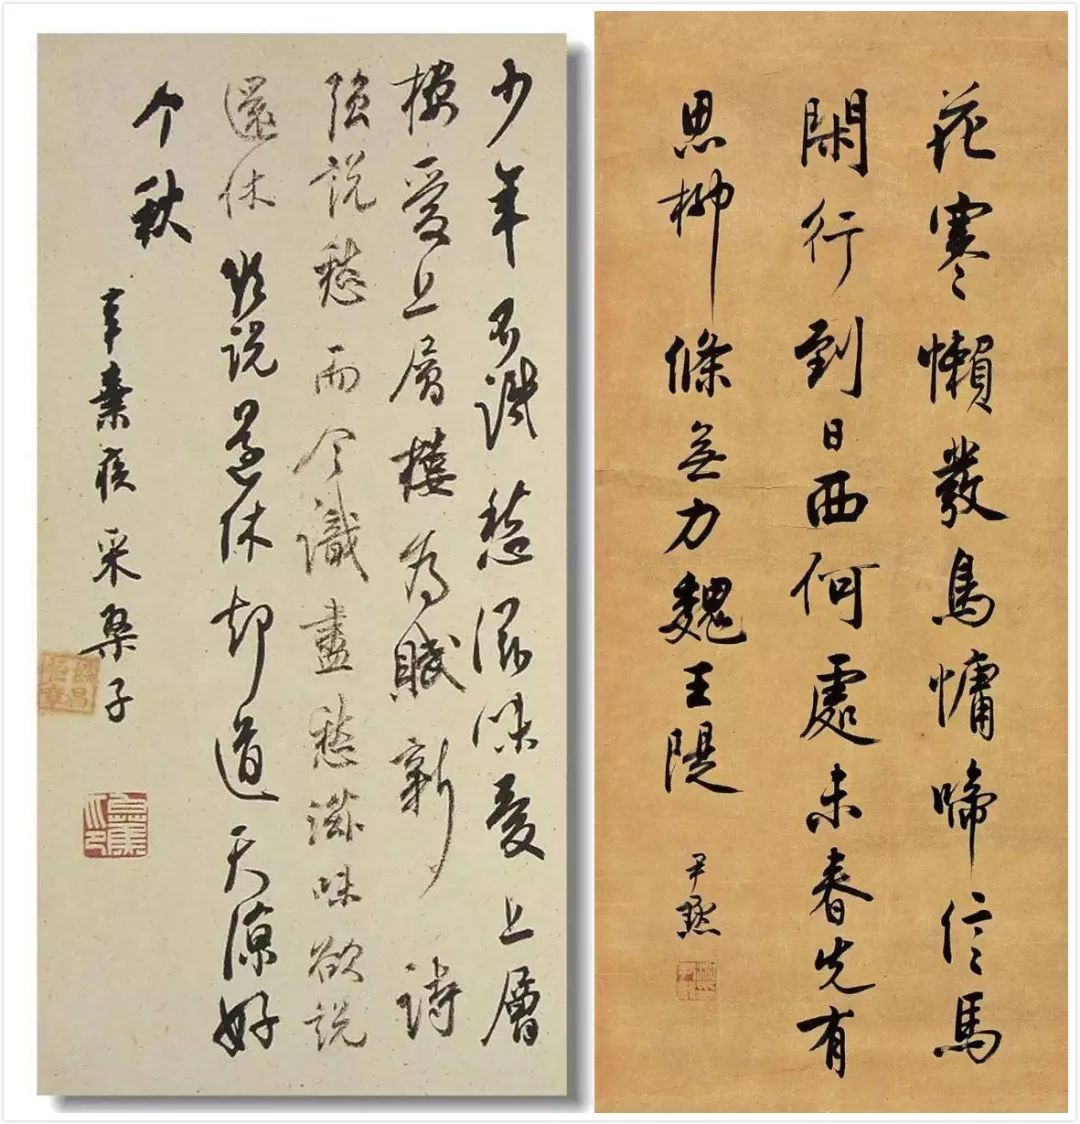 少年不識愁滋味愛上層
樓愛上層樓為賦新詩
強說愁而今識盡愁滋味欲說
還休欲說還休却道天涼好
个秋
辛棄疾采桑子
花寒懶發鳥慵啼信馬
閑行到日西何處未春先有
思柳條無力魏王隄
尹默